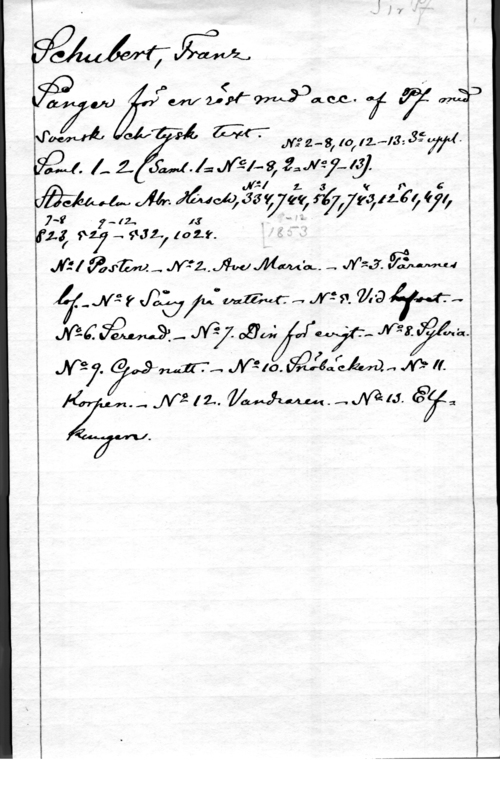 1 r Pf
Schubert, Franz
Sånger för en röst med acc. af Pf med
svensk och tysk text. Nº 2-8, 10, 12-13: 3e uppl.
Saml. 1-2 (Saml. 1 = Nº 1-8, 2 = Nº 9-13).
Nº 1 2 3 4 5 6
Stockholm Abr. Hirsch, 334, 744, 567, 743, 1261, 491,
7-8 9-12 13
823, 529-532, 1024. 9-12
[1853
Nº 1 Posten. - Nº 2. Ave Maria. - Nº 3. Tårarnes
lof. - Nº 4 Sång på vattnet. - Nº 5. Vid hafvet. -
Nº 6. Serenad. - Nº 7. Din för evigt. - Nº 8. Sylvia.
Nº 9. God natt. - Nº 10. Snöbäcken. - Nº 11.
Korpen. - Nº 12. Vandraren. - Nº 13. Elf-
kungen.